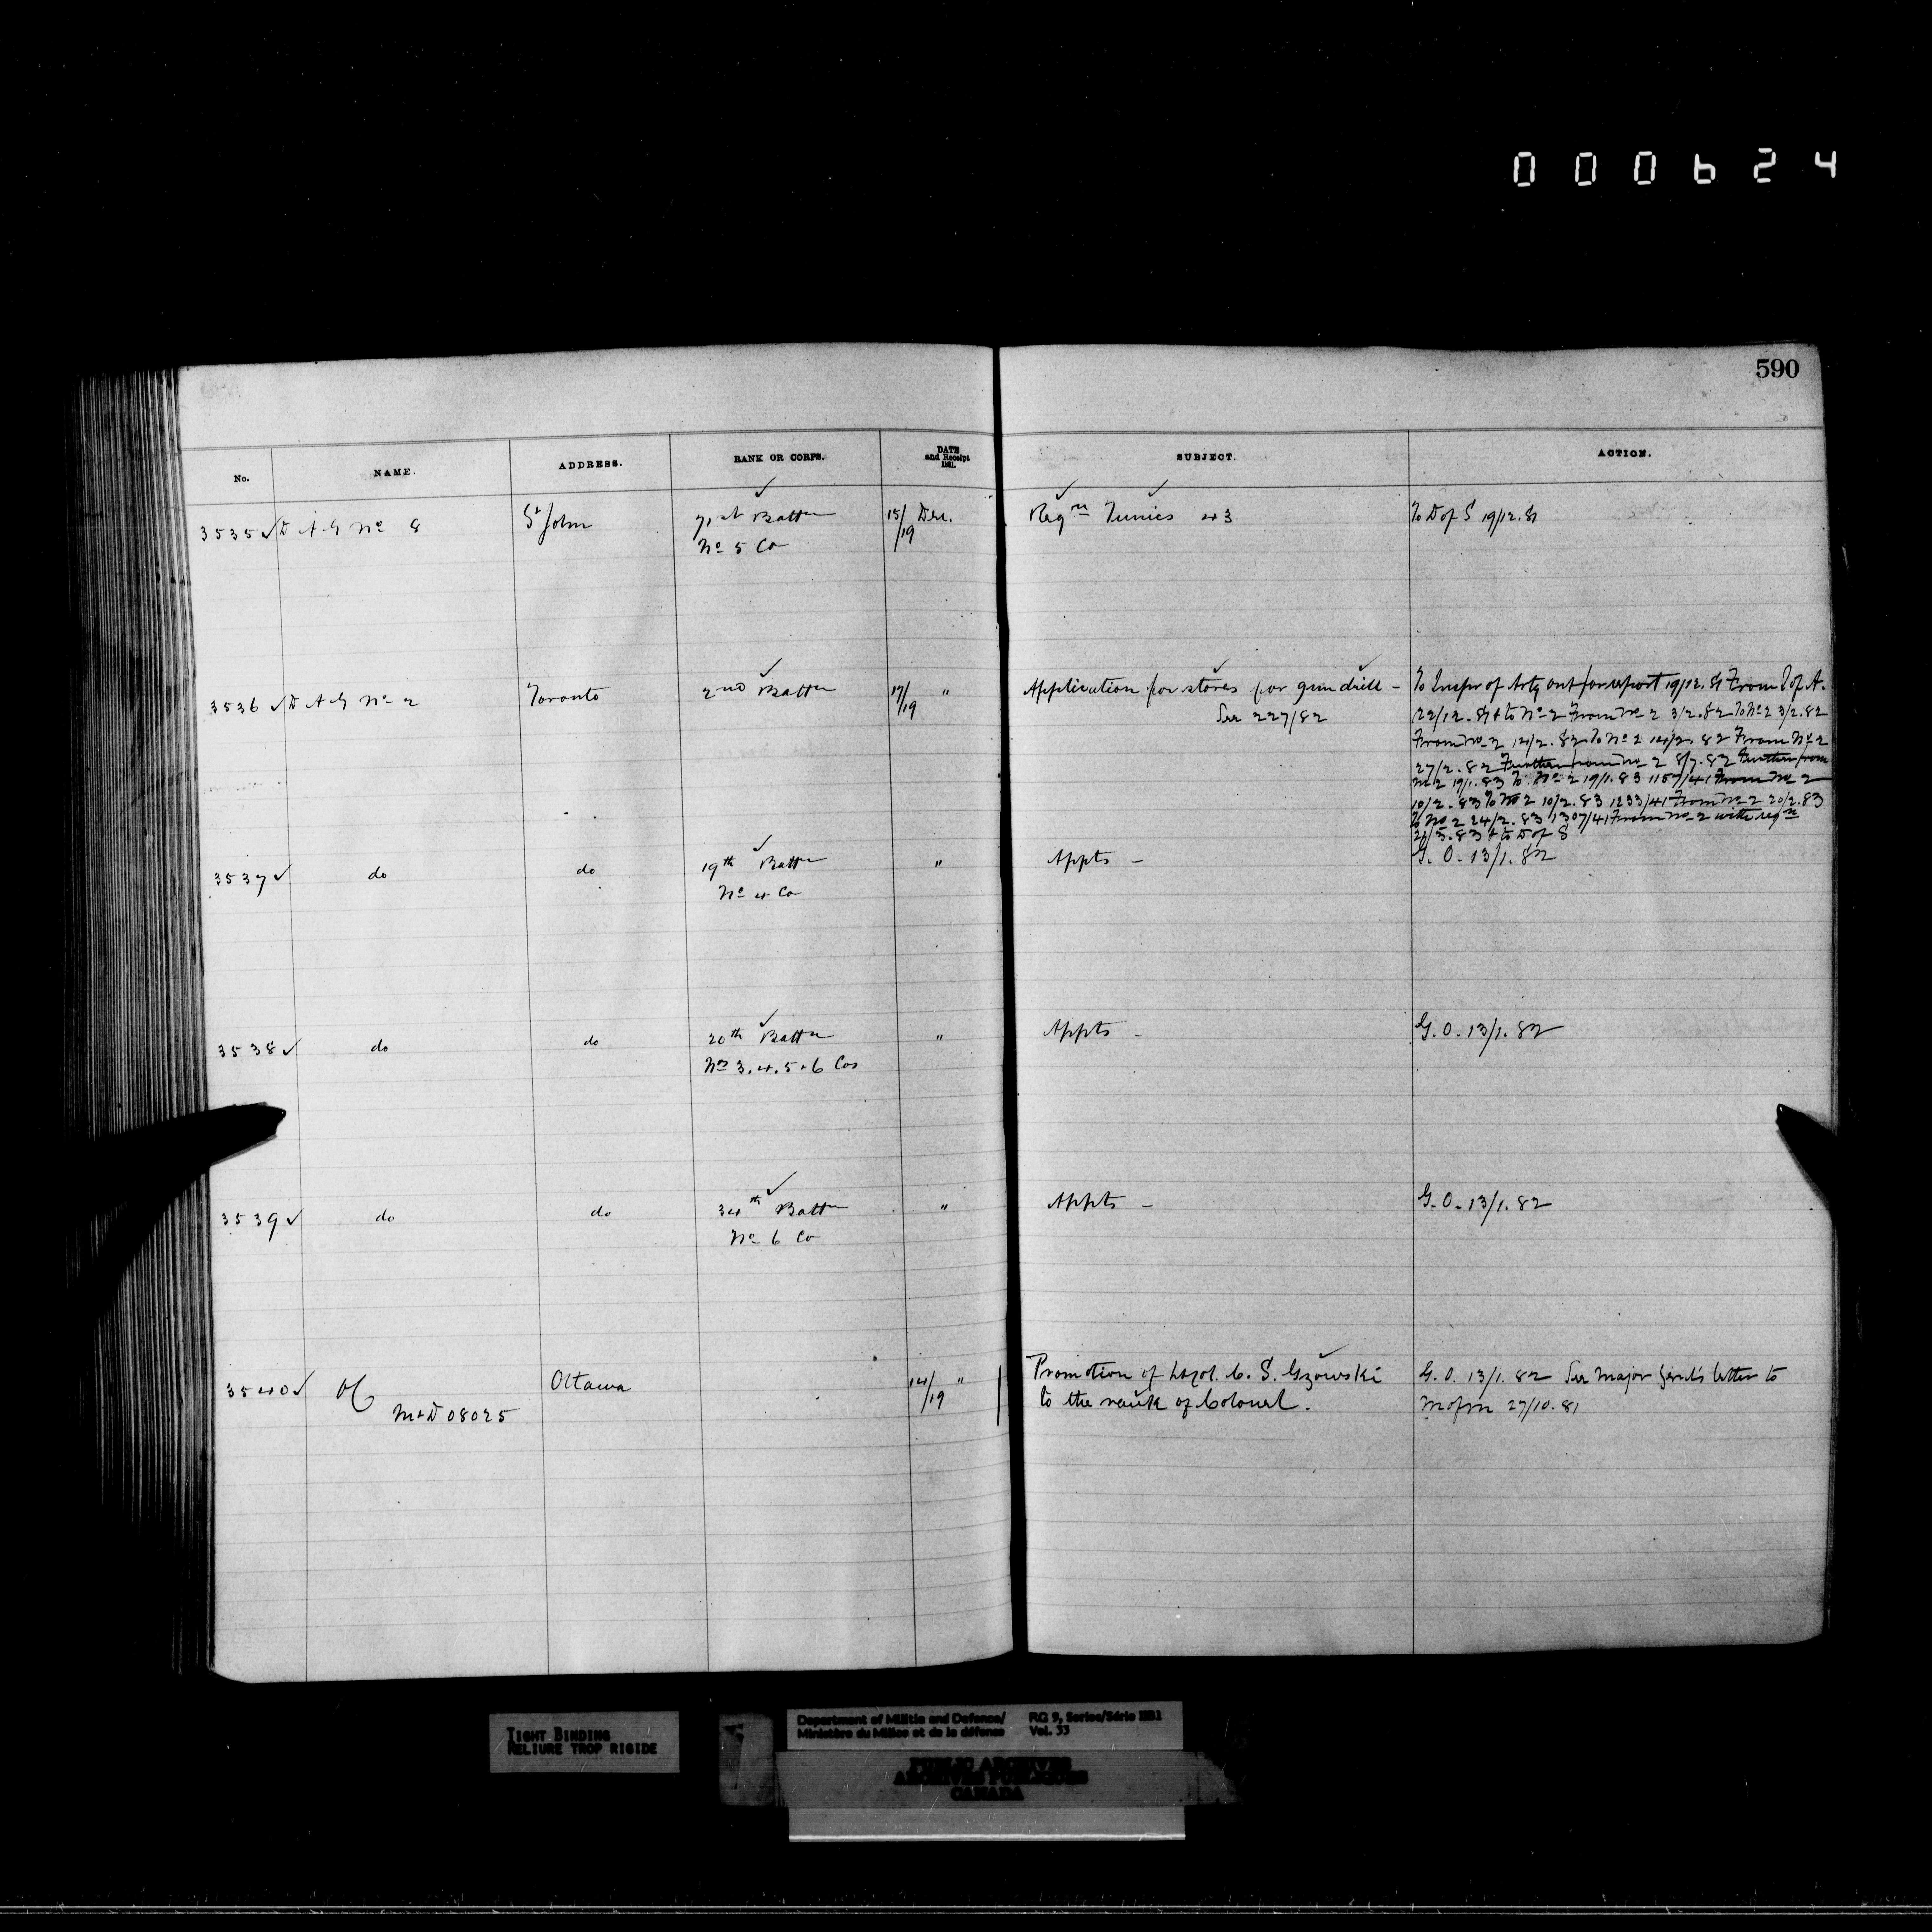 000624
590
No. NAME. ADDRESS. RANK OR CORPS. DATE and Receipt 1881. SUBJECT. ACTION.
3535 ✓ D A G No 8 St John 71st Battn 15/19 Dec. Reqn Tunics 43 To D of S 19/12.81
No 5 Co
3536 ✓ D A G No 2 Toronto 2nd Battn 17/19 " Application for stores for gun drill - To Inspr of Arty Ont for report 19/12.81 From I of A.
See 227/82 22/12.81 & to No 2 From No 2 3/2.82 To No 2 3/2.82
From No 2 14/2.82 To No 2 14/2.82 From No 2
27/2.82 Further from No 2 8/7.82 Further from
No 2 19/1.83 To No 2 19/1.83 1157/41 From No 2
10/2.83 To No 2 10/2.83 1233/41 From No 2 20/2.83
To No 2 24/2.83 1307/41 From No 2 with reqn
/5.83 & to D of S
3537 ✓ do do 19th Battn " Appts - G. O. 13/1.82
No 4 Co
3538 ✓ do do 20th Battn " Appts - G. O. 13/1.82
Nos 3.4.5 & 6 Cos
3539 ✓ do do 34th Battn " Appts - G. O. 13/1.82
No 6 Co
3540 ✓ OC Ottawa 14/19 " Promotion of Lt Col. C. S. Gzowski G. O. 13/1.82 See Major Genl's letter to
M & D 08025 to the rank of Colonel. M of M 27/10.81
TIGHT BINDING
RELIURE TROP RIGIDE
Department of Militia and Defence/ RG 9, Series/Série IIB1
Ministère du Milice et de la défense Vol. 33
PUBLIC ARCHIVES
ARCHIVES PUBLIQUES
CANADA